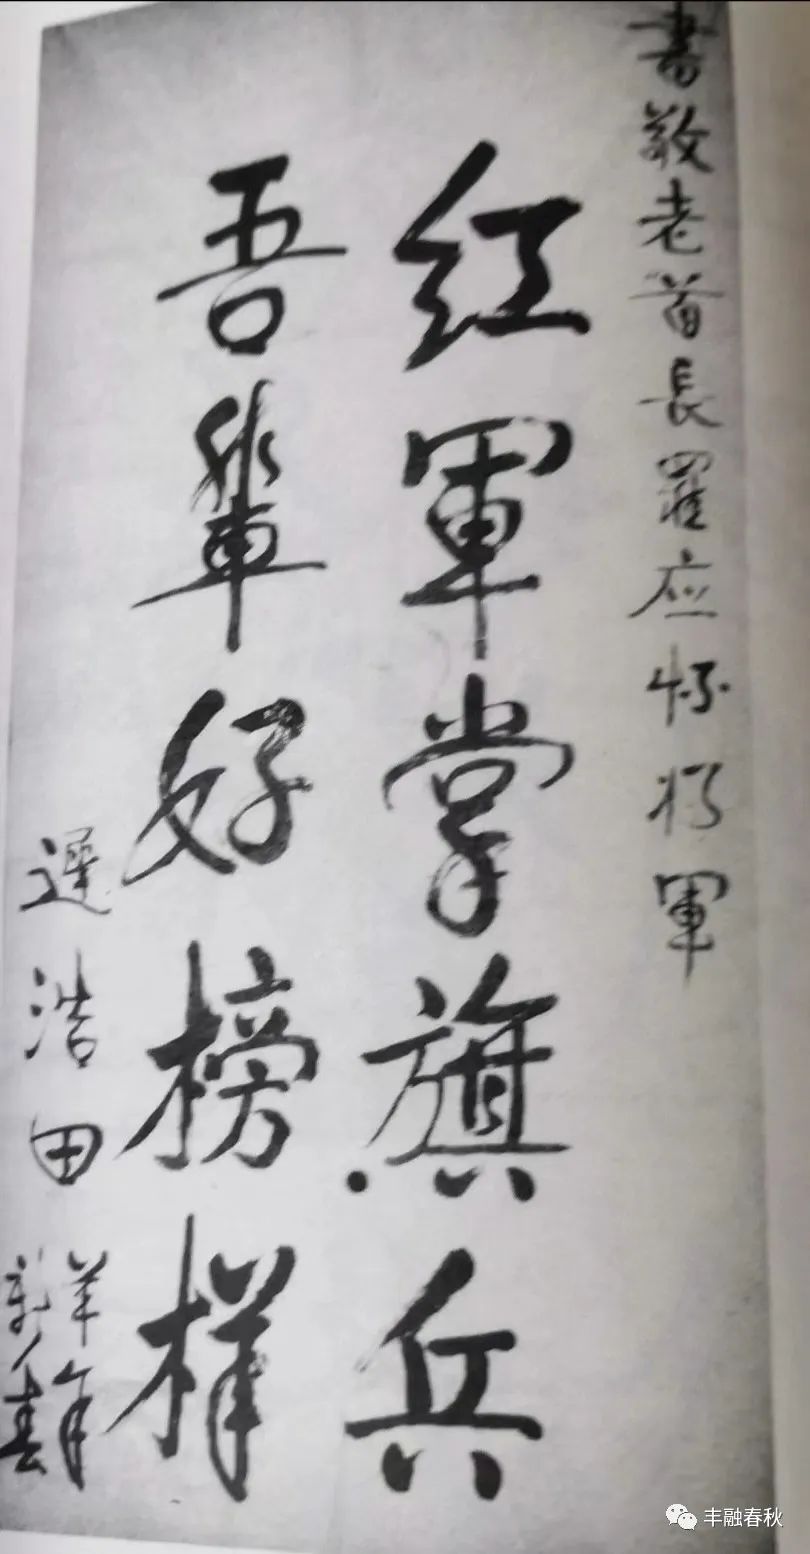 書敬老首長羅应怀将軍
紅軍掌旗兵
吾輩好榜樣
遲浩田
羊年
新春
丰融春秋